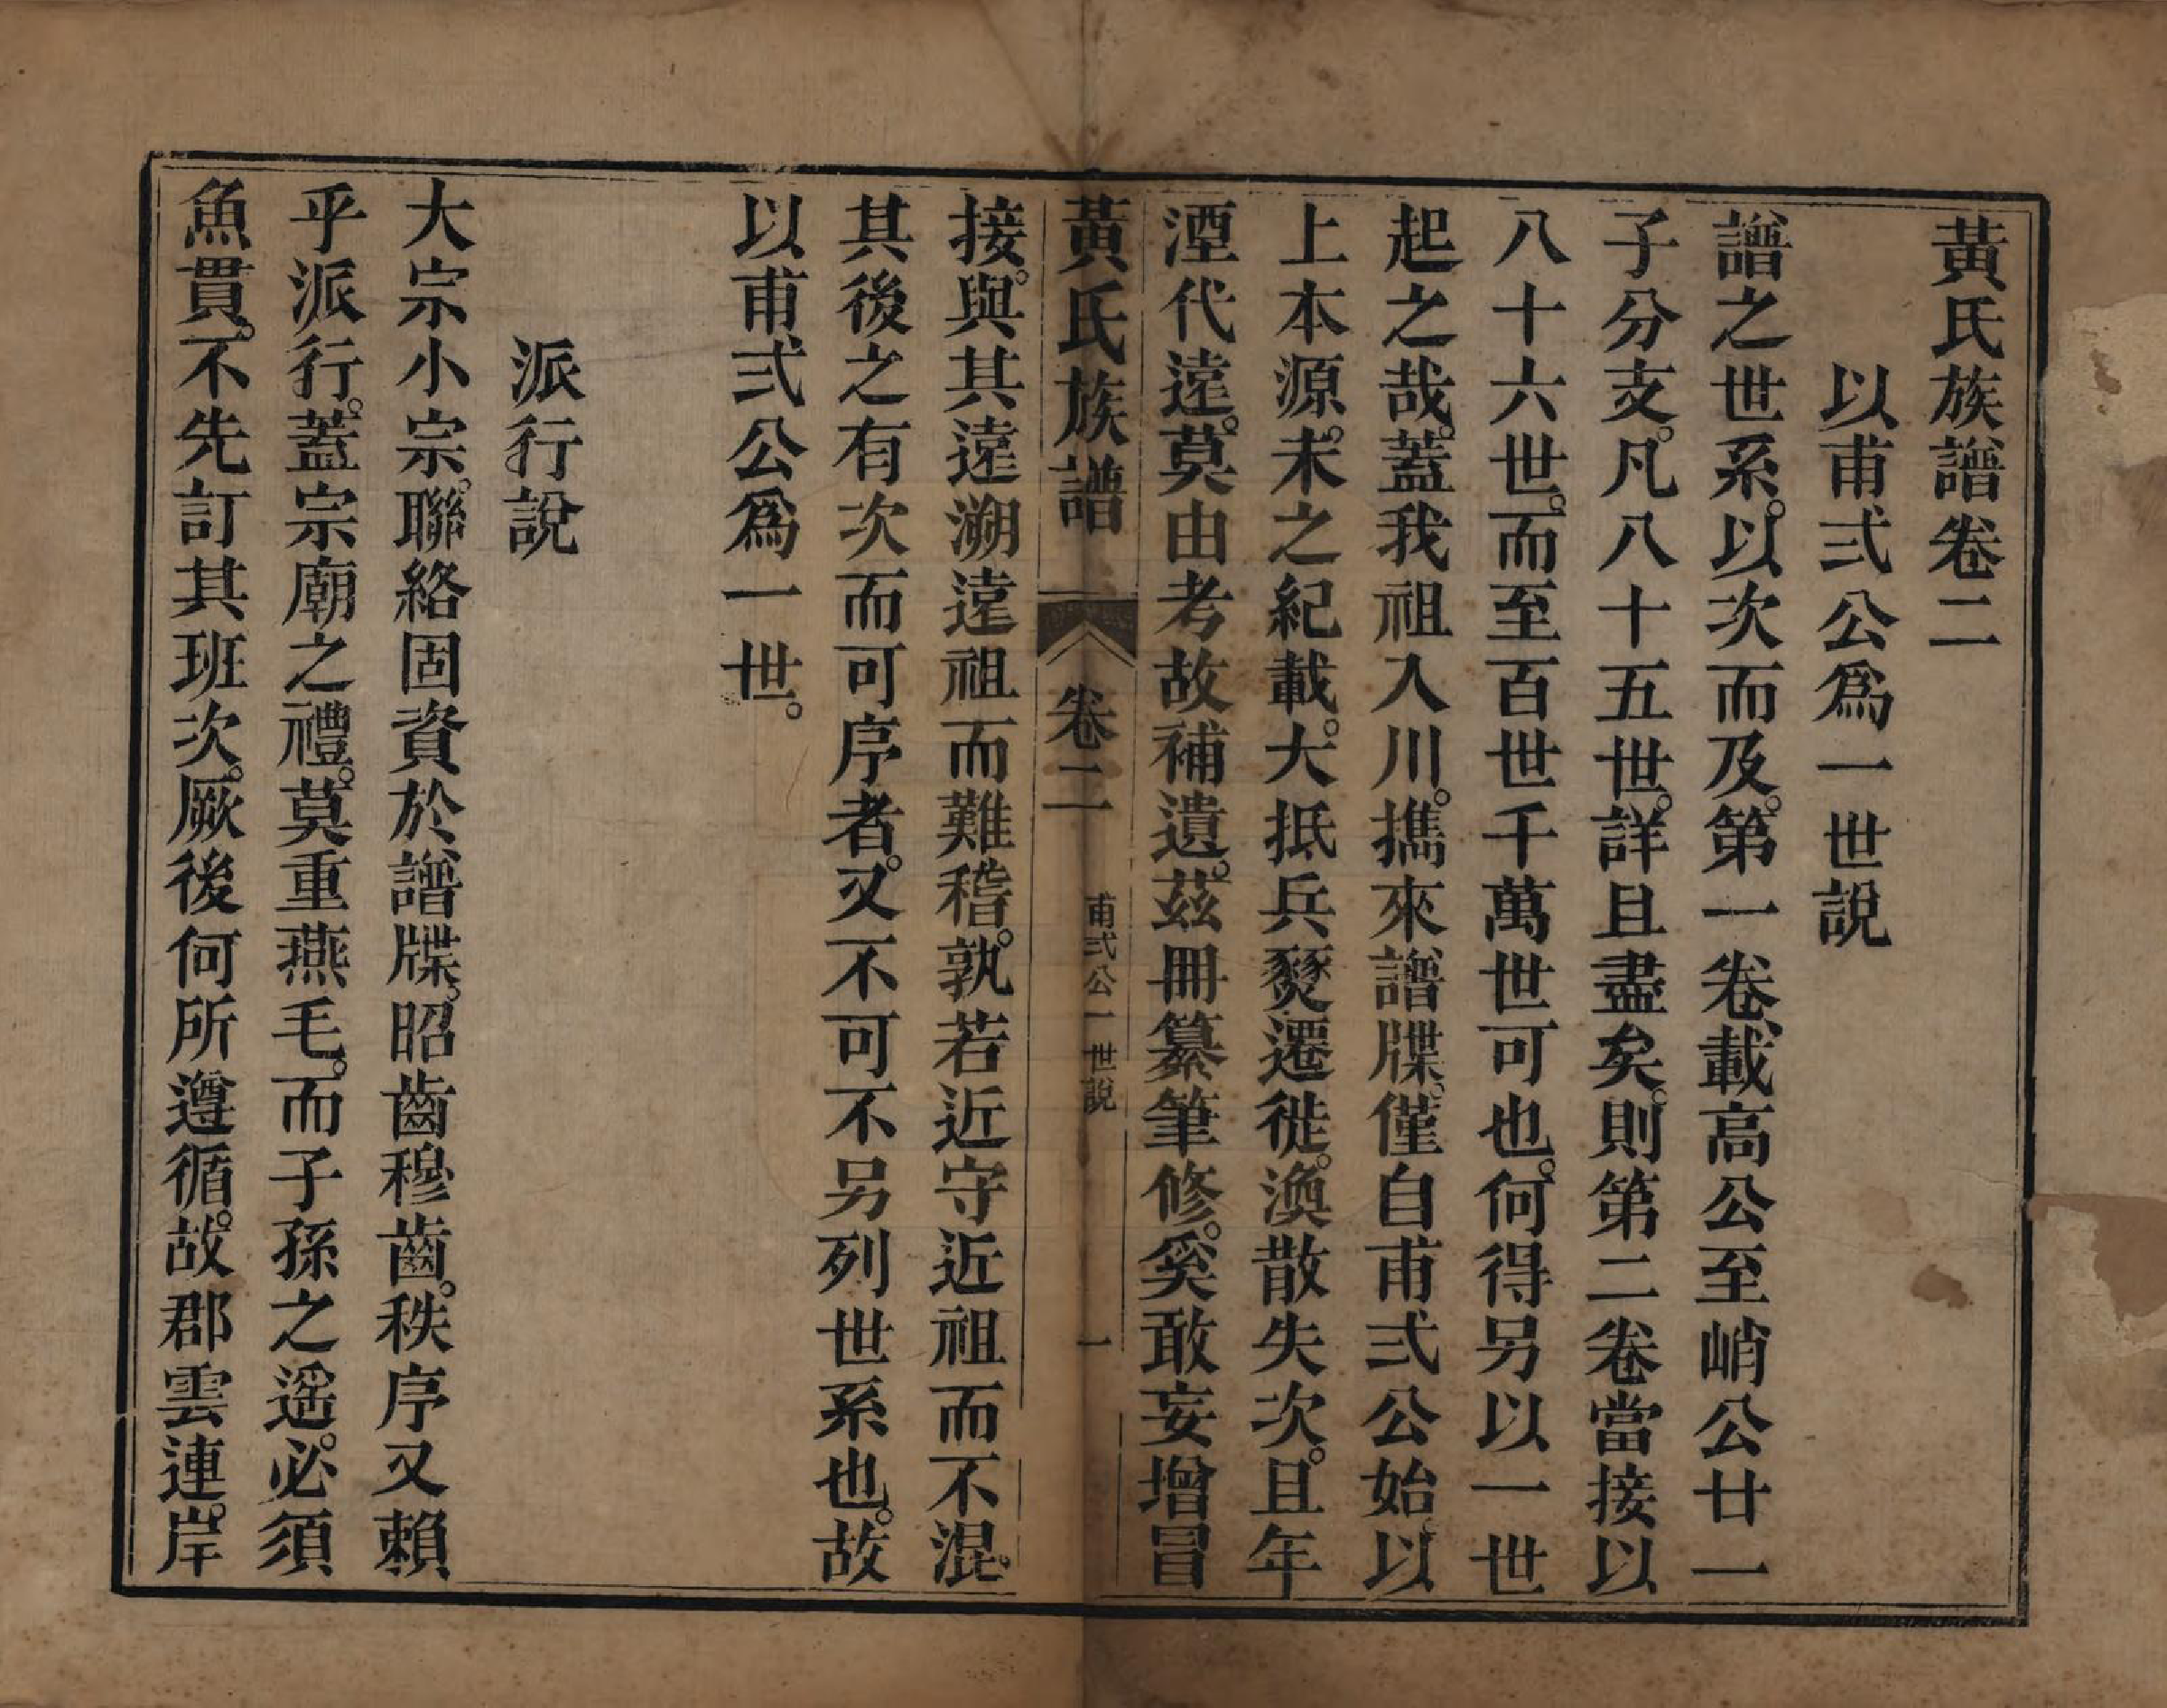 黃氏族譜卷二
以甫弍公爲一世說
譜之世系。以次而及。第一卷、載高公至峭公廿一
子分支。凡八十五世。詳且盡矣。則第二卷當接以
八十六世。而至百世千萬世可也。何得另以一世
起之哉。蓋我祖入川。攜來譜牒。僅自甫弍公始。以
上本源。未之紀載。大抵兵燹遷徙。渙散失次。且年
湮代遠。莫由考故補遺。茲冊纂筆修。奚敢妄增冒
黃氏族譜 卷二 甫弍公一世說 一
接。與其遠溯遠祖而難稽。孰若近守近祖而不混。
其後之有次而可序者。又不可不另列世系也。故
以甫弍公爲一世。
派行說
大宗小宗。聯絡固資於譜牒。昭齒穆齒。秩序又賴
乎派行。蓋宗廟之禮。莫重燕毛。而子孫之遥。必須
魚貫。不先訂其班次。厥後何所遵循。故郡雲連。岸